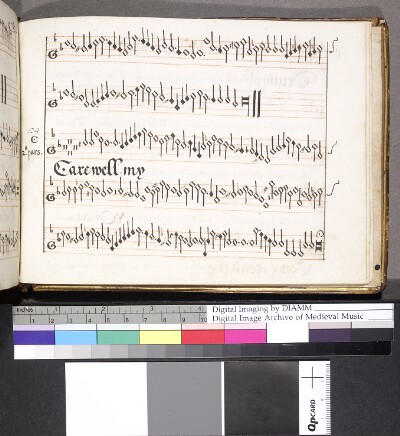 Farewell my
2ª pars.
Inches 1 2 3 4
1 2 3 4 5 6 7 8 9 10
Digital Imaging by DIAMM
Digital Image Archive of Medieval Music
QPCARD